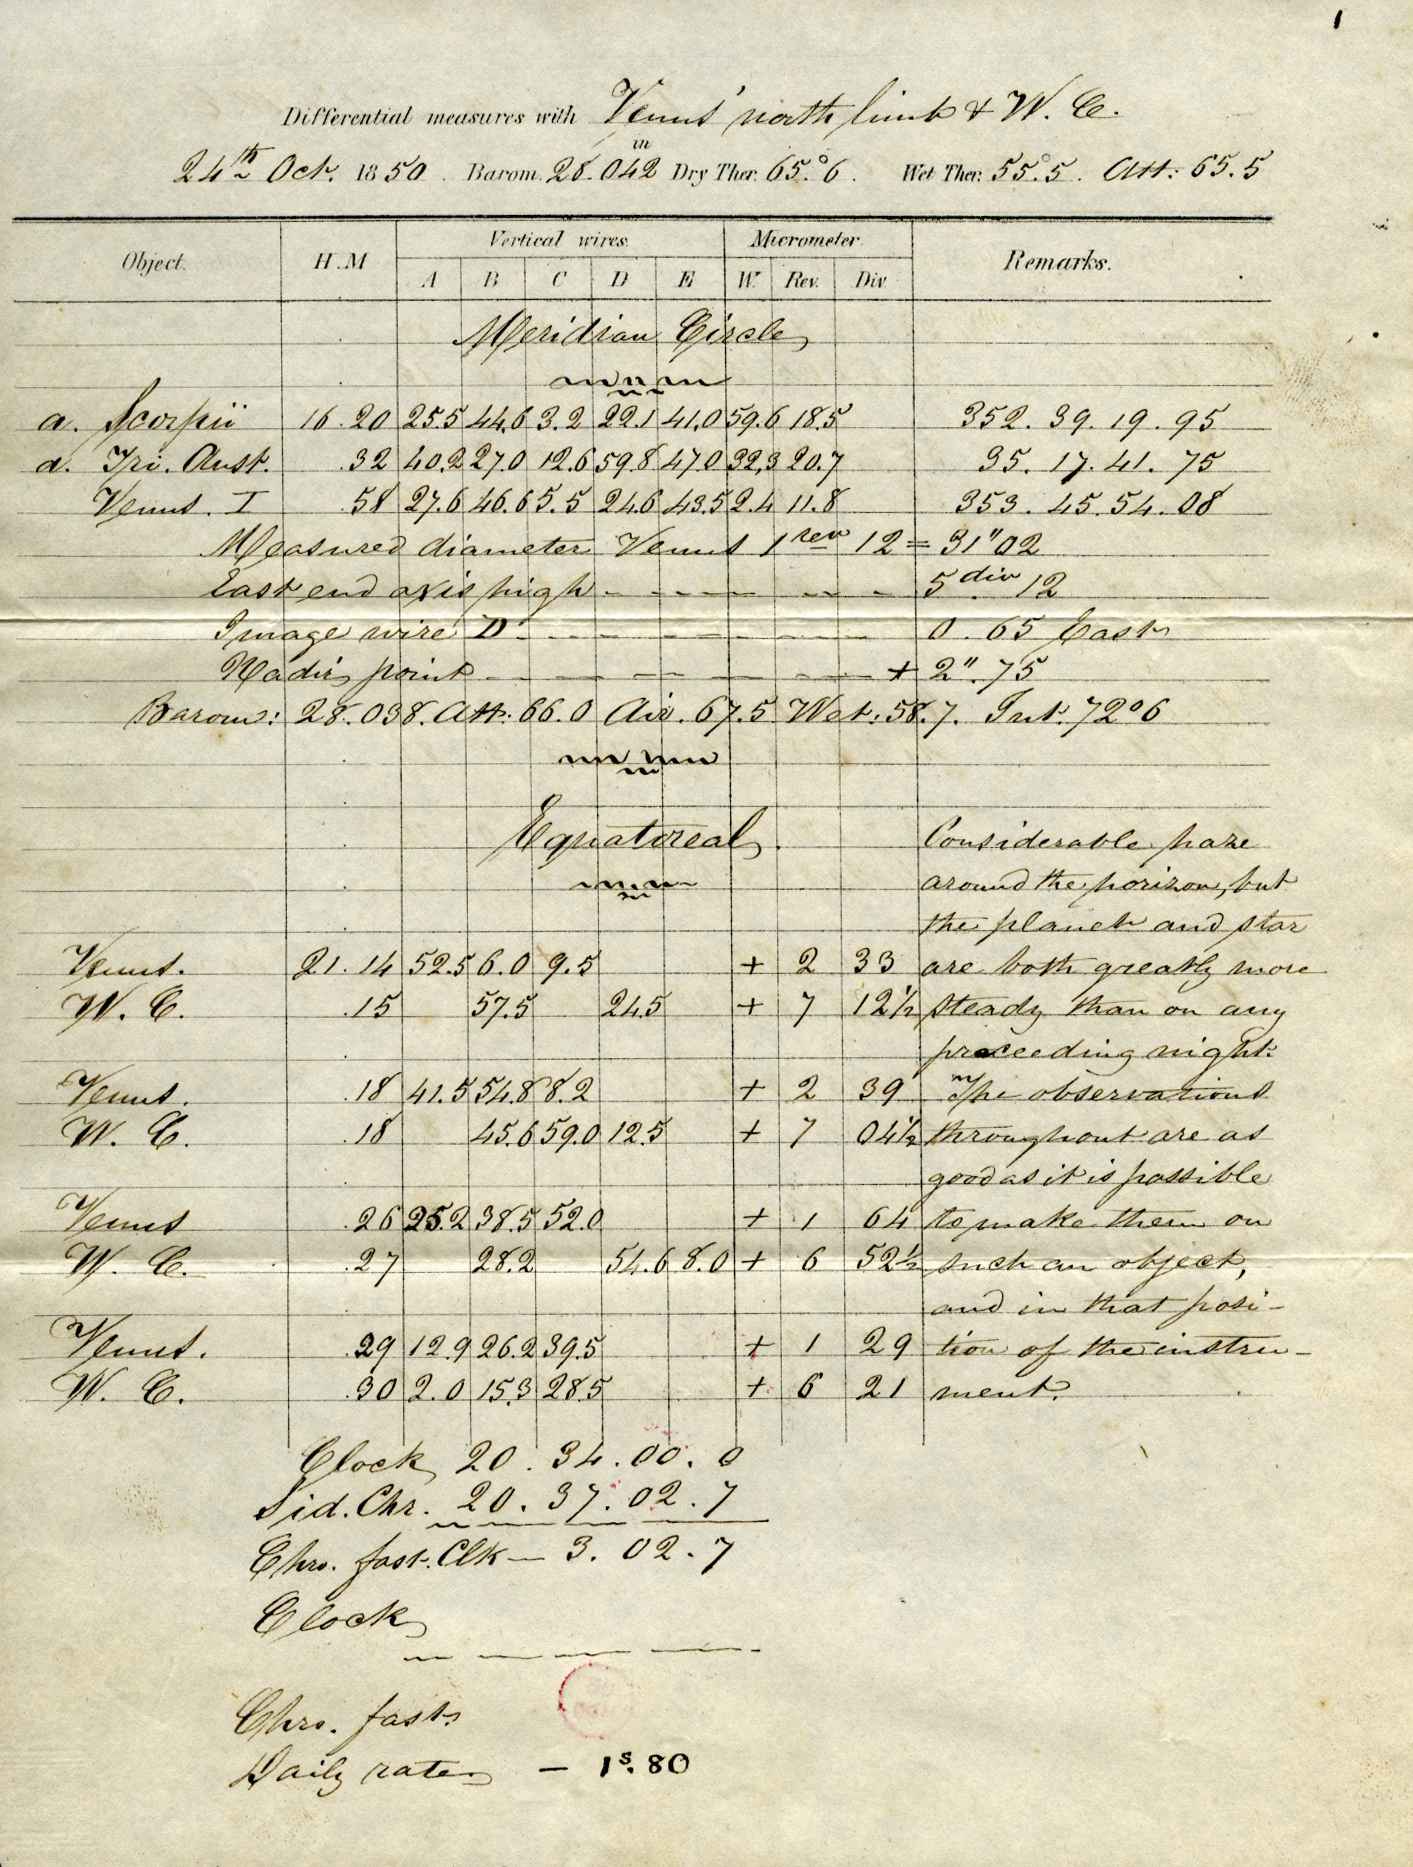 1
Differential measures with Venus' north limb & W. C.
24th Oct. 1850. Barom. 28.042 in Dry Ther. 65.°6. Wet Ther. 55.°5. Att: 65.5
Object. H.M Vertical wires. Micrometer. Remarks.
A B C D E W. Rev. Div
Meridian Circle
a. Scorpii 16.20 25.5 44.6 3.2 22.1 41.0 59.6 18.5 352.39.19.95
a. Tri. Aust. .32 40.2 27.0 12.6 59.8 47.0 32.3 20.7 35.17.41.75
Venus. I .58 27.6 46.6 5.5 24.6 43.5 2.4 11.8 353.45.54.08
Measured diameter Venus 1 rev 12 = 31"02
East end axis high - - - - - - - 5 div 12
Image wire D - - - - - - - - 0.65 East
Nadir point - - - - - - - + 2".75
Barom: 28.038. Att: 66.0 Air. 67.5 Wet: 58.7. Int. 72°6
Equatoreal. Considerable haze
around the horizon, but
the planet and star
Venus. 21.14 52.5 6.0 9.5 + 2 33 are both greatly more
W. C. .15 57.5 24.5 + 7 12½ steady than on any
preceeding night.
Venus. .18 41.5 54.8 8.2 + 2 39 The observations
W. C. .18 45.6 59.0 12.5 + 7 04½ throughout are as
good as it is possible
Venus .26 25.2 38.5 52.0 + 1 64 to make them on
W. C. .27 28.2 54.6 8.0 + 6 52½ such an object,
and in that posi-
Venus. .29 12.9 26.2 39.5 + 1 29 tion of the instru-
W. C. .30 2.0 15.3 28.5 + 6 21 ment.
Clock 20.34.00.0
Sid. Chr. 20.37.02.7
Chro. fast. Clk — 3.02.7
Clock
Chro. fast.
Daily rate — 1s.80